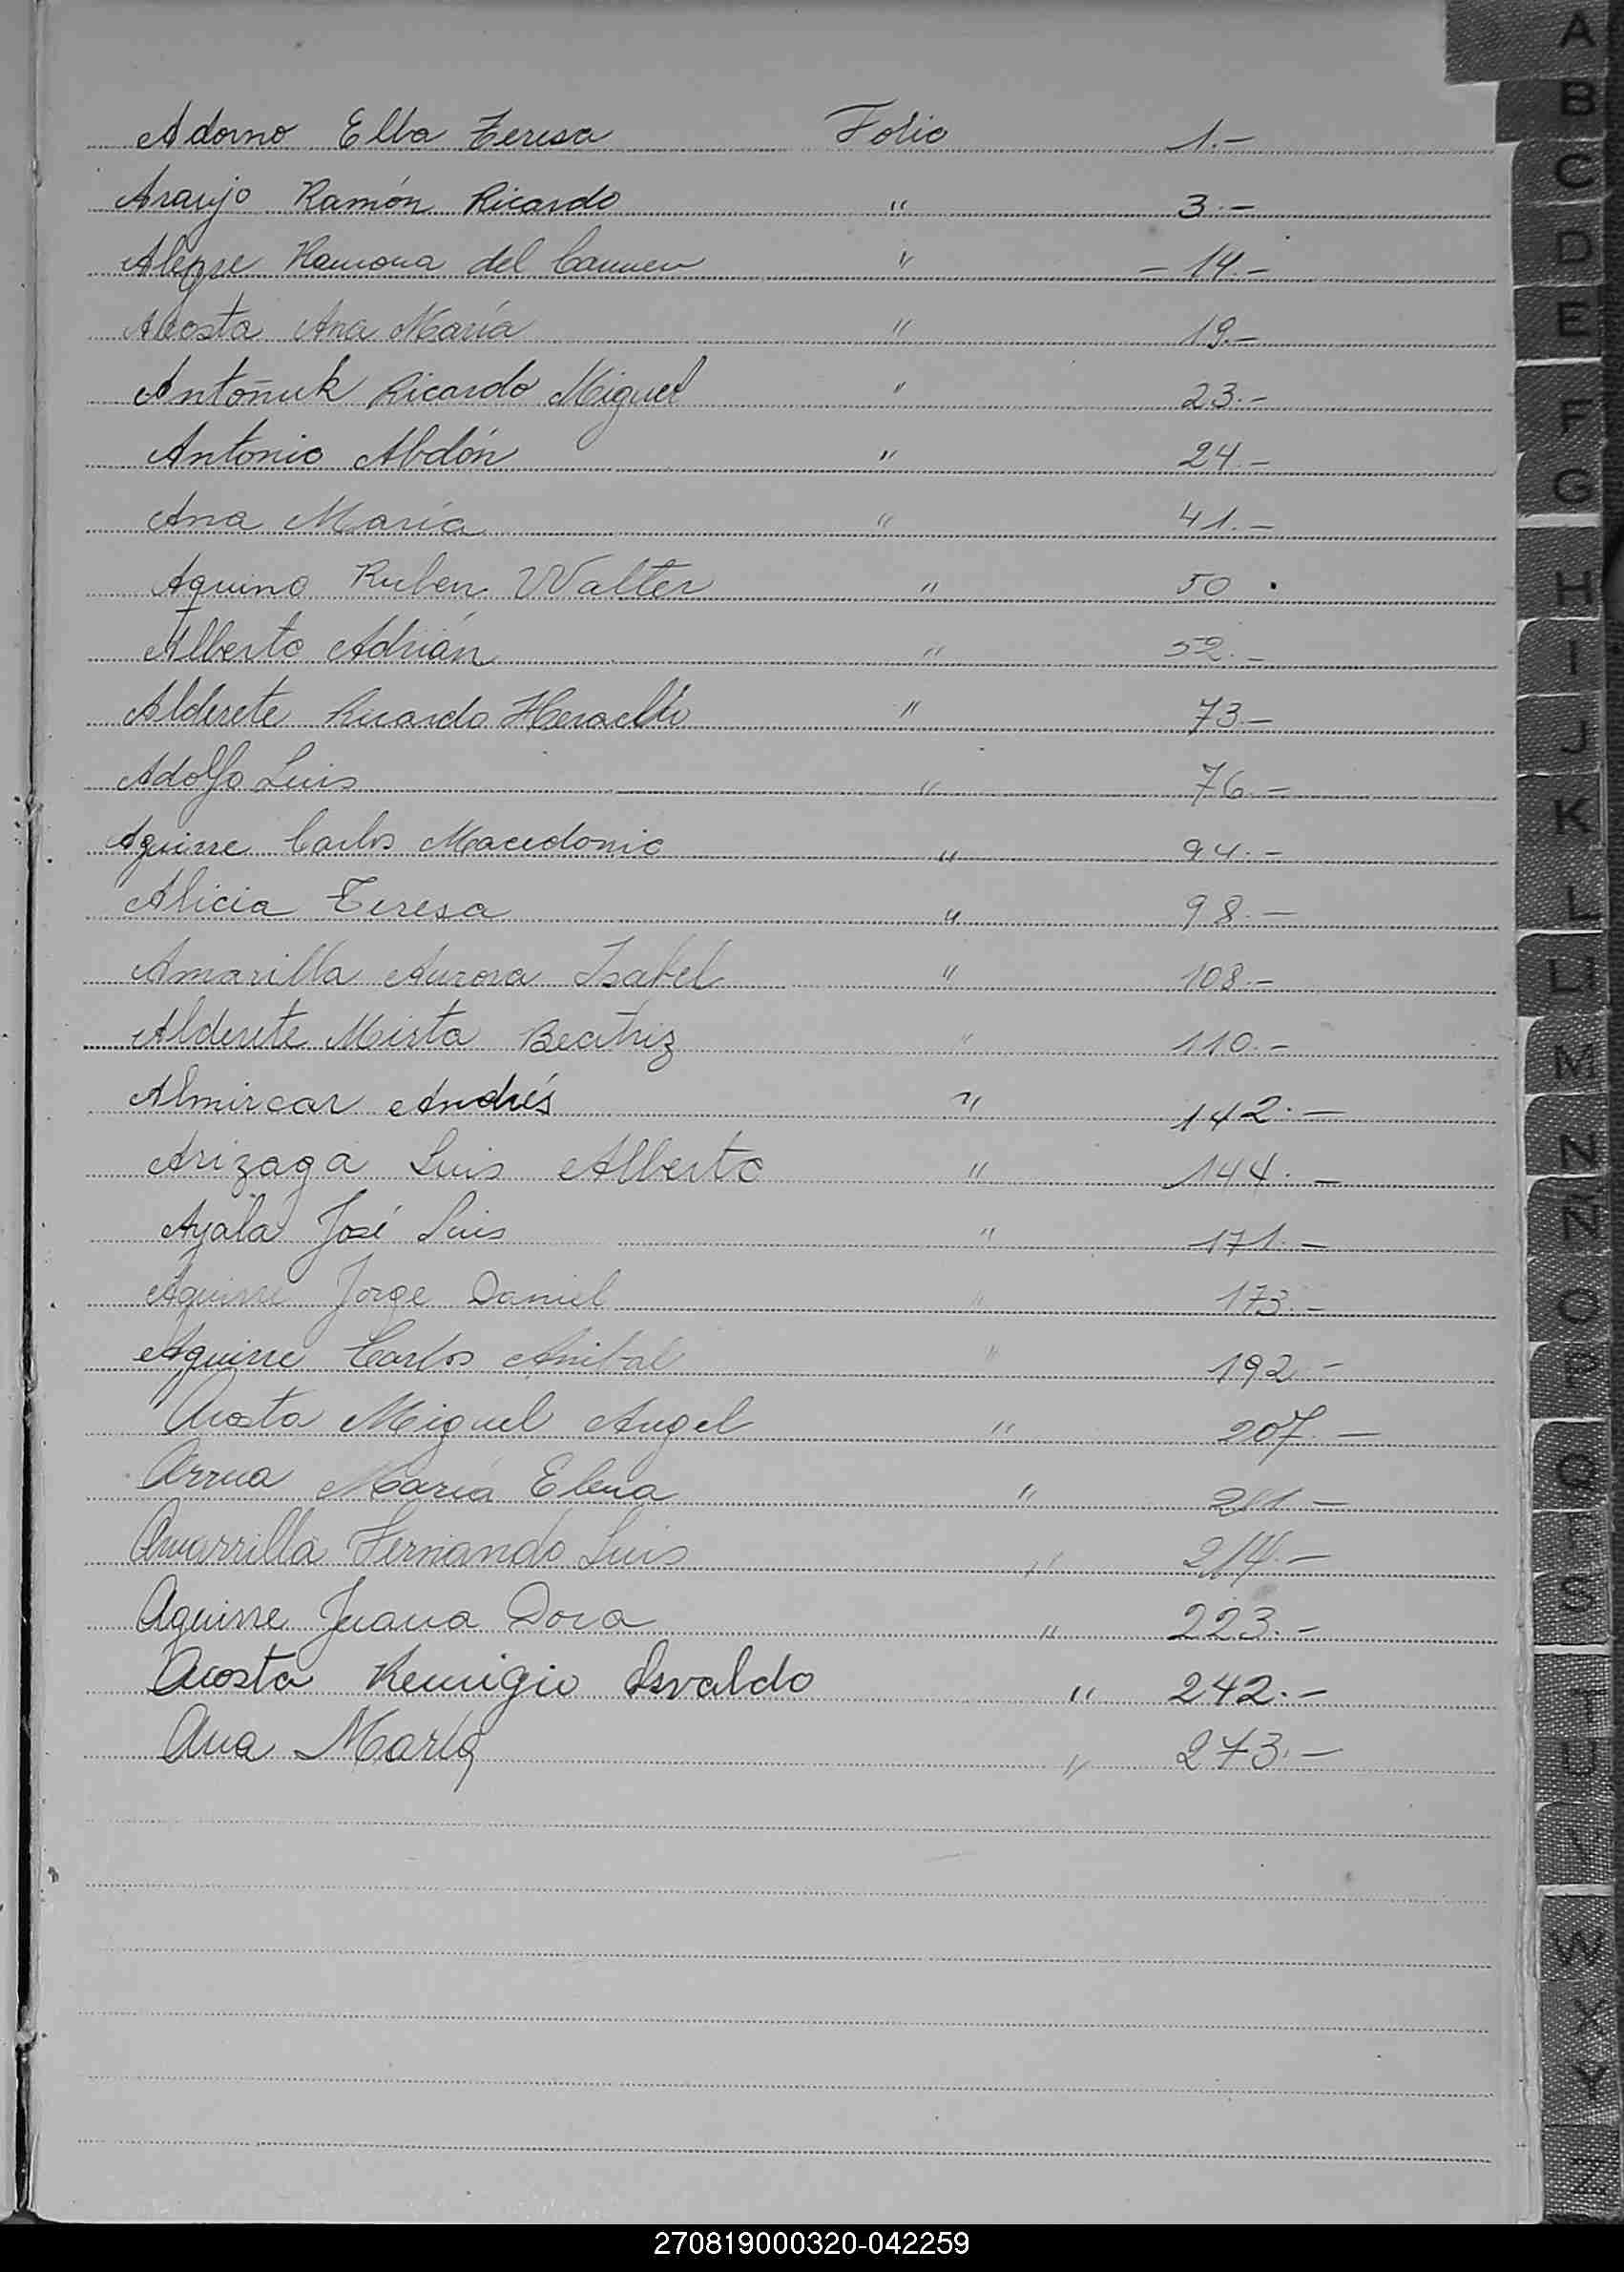 Adorno Elba Teresa Folio 1.-
Araujo Ramón Ricardo " 3.-
Alegre Ramona del Carmen " - 14.-
Acosta Ana María " 19.-
Antoñuk Ricardo Miguel " 23.-
Antonio Abdón " 24.-
Ana María " 41.-
Aquino Ruben Walter " 50.
Alberto Adrián " 52.-
Alderete Ricardo Heraclio " 73.-
Adolfo Luis " 76.-
Aguirre Carlos Macedonio " 94.-
Alicia Teresa " 98.-
Amarilla Aurora Isabel " 108.-
Alderete Mirta Beatriz " 110.-
Almircar Andrés " 142.-
Arizaga Luis Alberto " 144.-
Ayala José Luis " 171.-
Aguirre Jorge Daniel " 173.-
Aguirre Carlos Anibal " 192.-
Acosta Miguel Angel " 207.-
Arrua María Elena " 211.-
Amarrilla Fernando Luis " 214.-
Aguirre Juana Dora " 223.-
Acosta Remigio Osvaldo " 242.-
Ana María " 273.-
A
B
C
D
E
F
G
H
I
J
K
L
LL
M
N
Ñ
O
P
Q
R
S
T
U
V
W
X
Y
Z
270819000320-042259